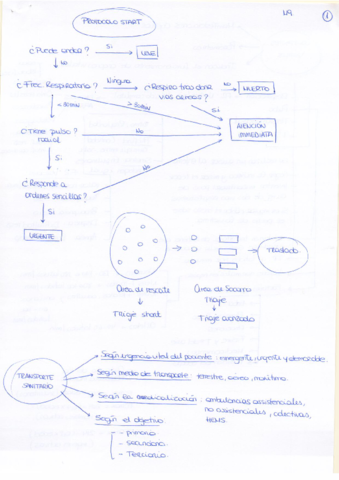 PROTOCOLO START
1
¿Puede andar?
Si
LEVE
No
¿Frec. Respiratoria?
Ninguna
¿Respira tras abrir
vías aéreas?
No
MUERTO
Si
¿Tiene pulso
radial?
No
ATENCIÓN
INMEDIATA
Si
¿Responde a
ordenes sencillas?
No
Si
URGENTE
Traslado
Área de rescate
Área de Socorro
Triaje
Triaje start
Triaje avanzado
TRANSPORTE
SANITARIO
Según urgencia vital del paciente: emergente, urgente y demorable.
Según medio de transporte: terrestre, aéreo, marítimo.
Según la medicalización: ambulancias asistenciales,
no asistenciales, colectivas,
Según el objetivo
- primario
- secundario
- Terciario